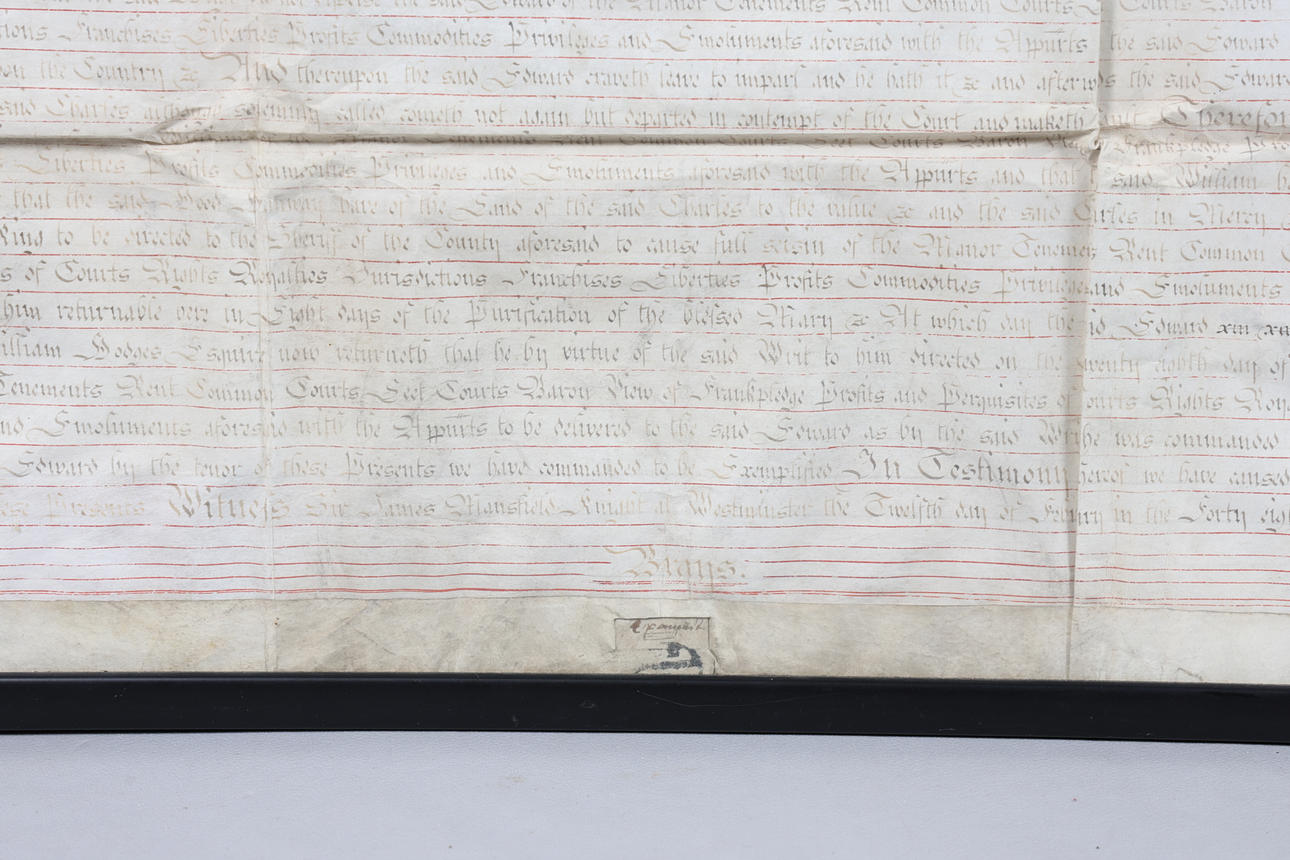 said Edward of the Manor Tenements Rent Common Courts Courts Baron
Franchises Liberties Profits Commodities Privileges and Emoluments aforesaid with the Appurts the said Edward
the Country &c And thereupon the said Edward craveth leave to imparl and he hath it &c and afterwds the said Edward
said Charles although solemnly called cometh not again but departed in contempt of the Court and maketh Therefor
Common Courts Leet Courts Baron Frankpledge
Liberties Profits Commodities Privileges and Emoluments aforesaid with the Appurts and that said William
that the said have of the Land of the said Charles to the value &c and the said in Mercy
King to be directed to the Sheriff of the County aforesaid to cause full seisin of the Manor Rent Common
s of Courts Rights Royalties Jurisdictions Franchises Liberties Profits Commodities Privileges and Emoluments
him returnable here in Eight days of the Purification of the blessed Mary &c At which day the Edward
illiam Hodges Esquire now returneth that he by virtue of the said Writ to him directed on the twenty eighth day of
Tenements Rent Common Courts Leet Courts Baron View of Frankpledge Profits and Perquisites of Courts Rights Roy
nd Emoluments aforesaid with the Appurts to be delivered to the said Edward as by the said he was commanded
Edward by the tenor of these Presents we have commanded to be Exemplified In Testimony hereof we have caused
ese Presents Witness Sir James Mansfield Knight at Westminster the Twelfth day of in the Forty eig
Brays.